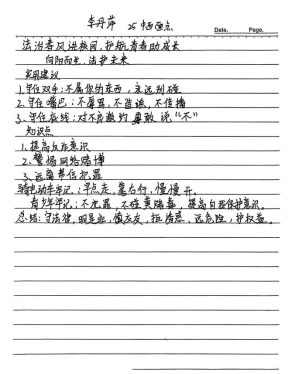 李丹萍 25中西面点
Date. Page.
法治春风进校园，护航青春助成长
向阳而生，法护未来
实用建议
1.守住双手：不属你的东西，永远别碰
2.守住嘴巴：不辱骂，不造谣，不传播
3.守住底线：对不良邀约勇敢说“不”
知识点
1.提高反诈意识
2.警惕网络赌博
3.远离帮信犯罪
骑电动车牢记：早点走，靠右行，慢慢开。
青少年牢记：不犯罪，不碰黄赌毒，提高自我保护意识。
总结：守法律，明是非，慎交友，拒诱惑，远危险，护权益。